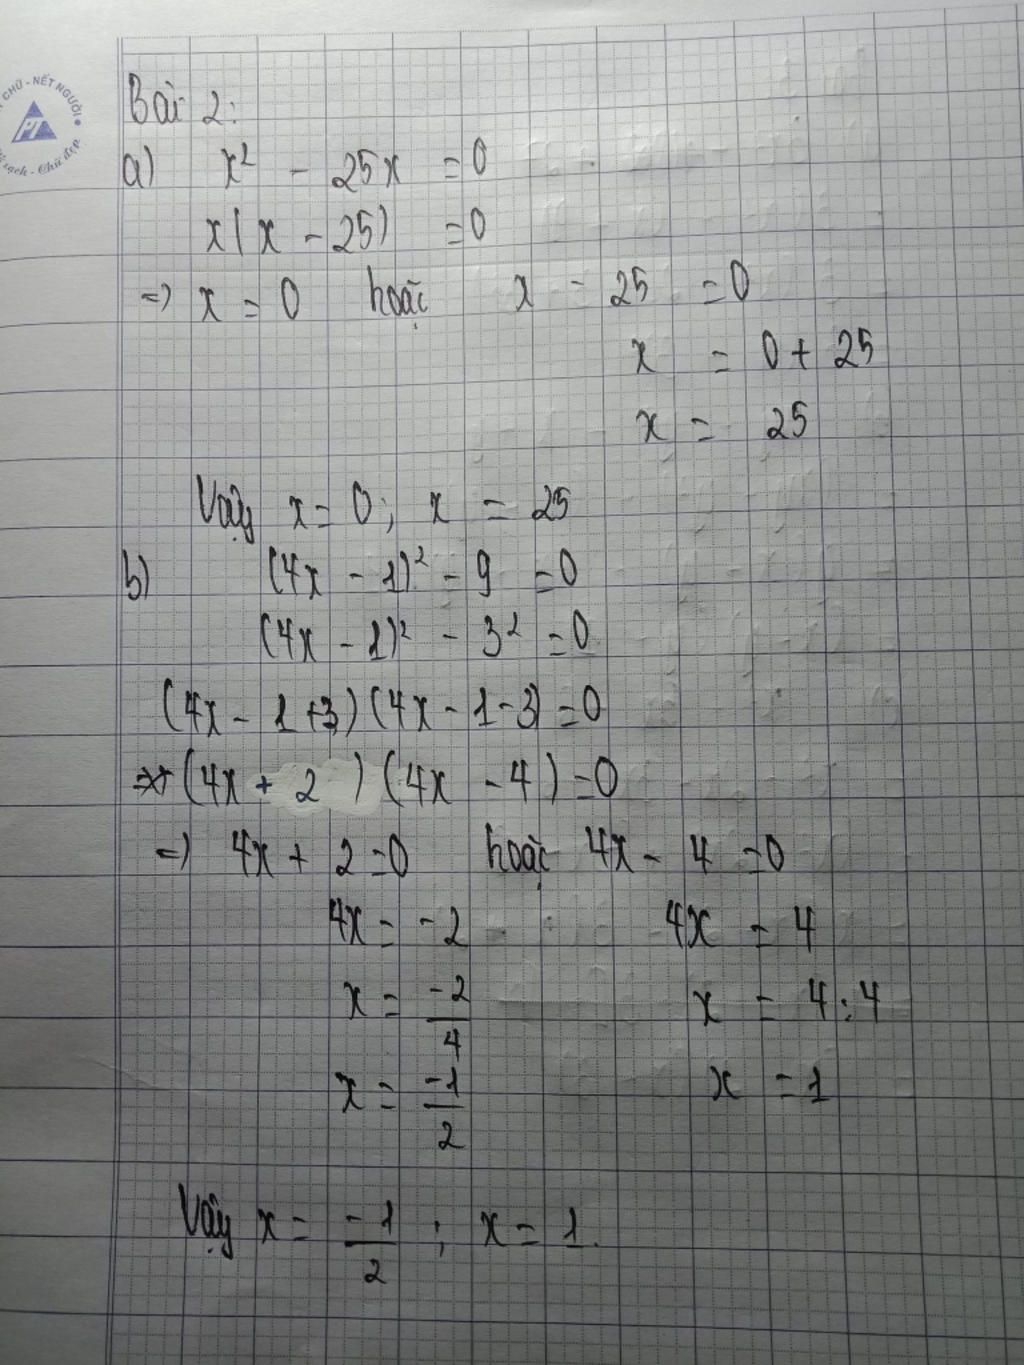 CHỮ - NẾT NGƯỜI
PT
sạch - Chữ đẹp
Bài 2:
a) x² - 25x = 0
x(x - 25) = 0
=> x = 0 hoặc x - 25 = 0
x = 0 + 25
x = 25
Vậy x = 0; x = 25
b) (4x - 1)² - 9 = 0
(4x - 1)² - 3² = 0
(4x - 1 + 3)(4x - 1 - 3) = 0
(4x + 2)(4x - 4) = 0
=> 4x + 2 = 0 hoặc 4x - 4 = 0
4x = -2 4x = 4
x = -2/4 x = 4 : 4
x = -1/2 x = 1
Vậy x = -1/2 ; x = 1.